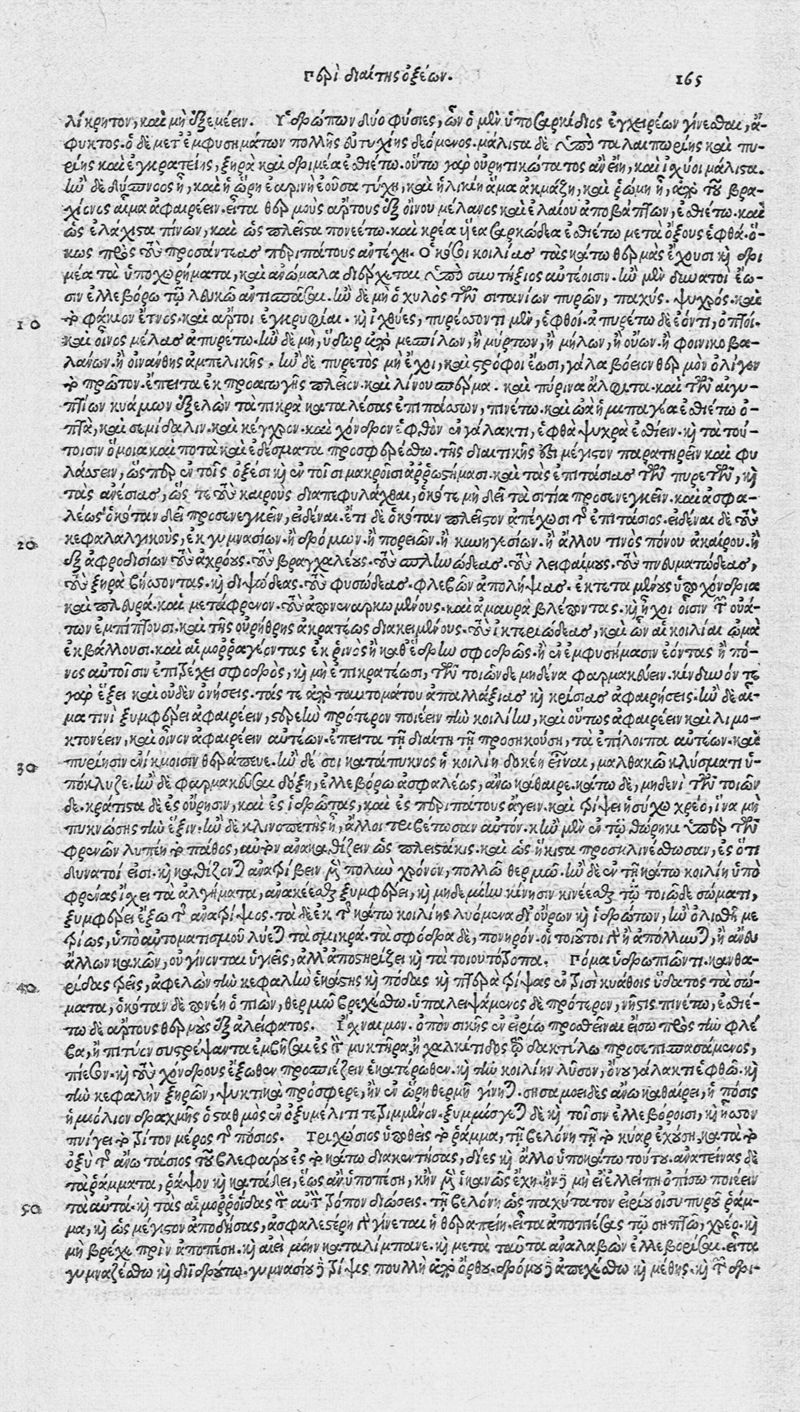 Περὶ διαίτης ὀξέων. 165
λίκρητον, καὶ μὴ ἐξεμέειν. Ὑδρώπων δύο φύσιες, ὧν ὁ μὲν ὑποσαρκίδιος ἐγχειρέων γίνεσθαι, ἄ-
φυκτος. ὁ δὲ μετ' ἐμφυσημάτων πολλῆς εὐτυχίης δεόμενος. μάλιστα δὲ ὑπὸ ταλαιπωρίης καὶ πυ-
ρίης καὶ ἐγκρατείης, ξηρὰ καὶ δριμέα ἐσθιέτω. οὕτω γὰρ οὐρητικώτατος ἂν εἴη, καὶ ἰσχύοι μάλιστα.
ἢν δὲ δύσπνοος ᾖ, καὶ ἡ ὥρη ἐαρινὴ ἐοῦσα τύχῃ, καὶ ἡλικίῃ ἅμα ἀκμάζῃ, καὶ ῥώμη ᾖ, ἀπὸ τοῦ βρα-
χίονος αἷμα ἀφαιρέειν. εἶτα θερμοὺς ἄρτους ἐξ οἴνου μέλανος καὶ ἐλαίου ἀποβάπτων, ἐσθιέτω. καὶ
ὡς ἐλάχιστα πίνων, καὶ ὡς πλεῖστα πονεέτω. καὶ κρέα ὕεια σαρκώδεα ἐσθιέτω μετὰ ὄξους ἑφθά. ὅ-
κως πρὸς τοὺς προσάντεας περιπάτους ἀντέχῃ. Ὁκόσοι κοιλίας τὰς κάτω θερμὰς ἔχουσι καὶ δρι
μέα τὰ ὑποχωρήματα, καὶ ἀνώμαλα διέρχεται ὑπὸ συντήξιος αὐτέοισιν. ἢν μὲν δυνατοὶ ἔω-
σιν ἑλλεβόρῳ τῷ λευκῷ ἀντισπάσαι. ἢν δὲ μὴ ὁ χυλὸς τῶν σιτανίων πυρῶν, παχύς. ψυχρός. καὶ
10 τὸ φάκιον ἔτνος. καὶ ἄρτοι ἐγκρυφίαι. καὶ ἰχθύες, πυρέσσοντι μὲν, ἑφθοί. ἀπυρέτῳ δὲ ἐόντι, ὀπτοί.
καὶ οἶνος μέλας ἀπυρέτῳ. ἢν δὲ μὴ, ὕδωρ ἀπὸ μεσπίλων, ἢ μύρτων, ἢ μήλων, ἢ οὔων. ἢ φοινικοβα-
λάνων, ἢ οἰνάνθης ἀμπελικῆς. ἢν δὲ πυρετὸς μὴ ἔχῃ, καὶ στρόφοι ἔωσι, γάλα βόειον θερμὸν ὀλίγον
τὸ πρῶτον. ἔπειτα ἐκ προαγωγῆς πλεῖον. καὶ λίνου σπέρμα. καὶ πύρινα ἄλφιτα. καὶ τῶν αἰγυ-
πτίων κυάμων ἐξελὼν τὰ πικρὰ καταλέσας ἐπιπάσσων, πινέτω. καὶ ᾠὰ ἡμιπαγέα ἐσθιέτω ὀ-
πτά, καὶ σεμίδαλιν. καὶ κέγχρον. καὶ χόνδρον ἑφθὸν ἐν γάλακτι, ἑφθὰ ψυχρὰ ἐσθίειν. καὶ τὰ τού-
τοισιν ὅμοια καὶ ποτὰ καὶ ἐδέσματα προσφερέσθω. τῆς διαιτικῆς ἐστι μέγιστον παρατηρεῖν καὶ φυ
λάσσειν, ὥσπερ ἐν τοῖς ὀξέσι καὶ ἐν τοῖσι μακροῖσι ἀρρωστήμασι. καὶ τὰς ἐπιτάσιας τῶν πυρετῶν, καὶ
τὰς ἀνέσιας, ὥς τε τοὺς καιροὺς διαπεφυλάχθαι, ὁκότε μὴ δεῖ τὰ σιτία προσενεγκεῖν. καὶ ἀσφα-
λέως ὁκόταν δεῖ προσενεγκεῖν, εἰδέναι. ἔτι δὲ ὁκόταν πλεῖστον ἀπέχωσι τῆς ἐπιτάσιος. εἰδέναι δὲ τοὺς
20 κεφαλαλγικοὺς, ἐκ γυμνασίων. ἢ δρόμων. ἢ πορειῶν. ἢ κυνηγεσίων. ἢ ἄλλου τινὸς πόνου ἀκαίρου. ἢ
ἐξ ἀφροδισίων τοὺς ἀχρόους. τοὺς βραγχαλέους. τοὺς σπληνώδεας. τοὺς λειφαίμους. τοὺς πνευματώδεας,
τοὺς ξηρὰ βήσσοντας. καὶ διψώδεας. τοὺς φυσώδεας. φλεβῶν ἀπολήψιας. ἐκτεταμένους ὑποχόνδρια
καὶ πλευρά. καὶ μετάφρενον. τοὺς ἀπονεναρκωμένους. καὶ ἀμαυρὰ βλέποντας. καὶ ἦχοι οἷσιν τῶν οὐά-
των ἐμπίπτουσι. καὶ τῆς οὐρήθρης ἀκρατέως διακειμένους. τοὺς ἰκτεριώδεας, καὶ ὧν αἱ κοιλίαι ὠμὰ
ἐκβάλλουσι. καὶ αἱμορραγέοντας ἐκ ῥινὸς ἢ καθ' ἕδρην σφοδρῶς. ἢ ἐν ἐμφυσήμασιν ἐόντας ἢ πό-
νος αὐτοῖσιν ἐπιβέχει σφοδρὸς, καὶ μὴ ἐπικρατέωσι, τῶν τοιῶνδε μηδένα φαρμακεύειν. κίνδυνόν τε
γὰρ ἕξει καὶ οὐδὲν ὀνήσεις. τάς τε ἀπὸ ταυτομάτου ἀπαλλάξιας καὶ κρίσιας ἀφαιρήσεις. ἢν δὲ αἷ-
μά τινι ξυμφέρει ἀφαιρέειν, στερεὴν πρότερον ποιέειν τὴν κοιλίην, καὶ οὕτως ἀφαιρέειν καὶ λιμο-
κτονέειν, καὶ οἶνον ἀφαιρέειν αὐτέων. ἔπειτα τῇ διαίτῃ τῇ προσηκούσῃ, τὰ ἐπίλοιπα αὐτέων. καὶ
30 πυρίῃσιν ἐνίκμοισιν θεράπευε. ἢν δέ σοι κατάπυκνος ἡ κοιλίη δοκέῃ εἶναι, μαλθακῷ κλύσματι ὑ-
πόκλυζε. ἢν δὲ φαρμακεῦσαι δόξῃ, ἑλλεβόρῳ ἀσφαλέως, ἄνω κάθαιρε. κάτω δὲ, μηδενὶ τῶν τοιῶν
δε. κράτιστα δὲ ἐς οὔρησιν, καὶ ἐς ἱδρῶτας, καὶ ἐς περιπάτους ἄγειν. καὶ τρίψει ἡσύχῳ χρέο, ἵνα μὴ
πυκνώσῃς τὴν ἕξιν. ἢν δὲ κλινοπετὴς ᾖ, ἄλλοι τριβέτωσαν αὐτόν. κἢν μὲν ἐν τῷ θώρηκι ὑπὲρ τῶν
φρενῶν λυπέῃ τὸ πάθος, αὐτὸν ἀνακαθίζειν ὡς πλειστάκις. καὶ ὡς ἥκιστα προσκλινέσθωσαν, ἐς ὅτι
δυνατοί εἰσι. καὶ καθίζοντας ἀνατρίβειν μετὰ πολὺν χρόνον, πολλῷ θερμῷ. ἢν δὲ ἐν τῇ κάτω κοιλίῃ ὑπὸ
φρένας ἴσχει τὰ ἀλγήματα, ἀνακέεσθαι ξυμφέρει, καὶ μηδεμίην κίνησιν κινέεσθαι τῷ τοιῷδε σώματι,
ξυμφέρει ἔξω τῆς ἀνατρίψιος. τὰ δὲ ἐκ τῆς κάτω κοιλίης λυόμενα δι' οὔρων καὶ ἱδρώτων, ἢν ὀλισθῇ με
τρίως, ὑπὸ αὐτοματισμοῦ λύεται τὰ σμικρά. τὰ σφόδρα δὲ, πονηρόν. οἱ τοιοῦτοι γὰρ ἢ ἀπόλλυνται, ἢ ἄνευ
ἄλλων κακῶν, οὐ γίνονται ὑγιεῖς, ἀλλ' ἀποστηρίζει καὶ τὰ τοιουτότροπα. Πόμα ὑδρωπιῶντι. κανθα-
40 ρίδας τρεῖς, ἀφελὼν τὴν κεφαλὴν ἑκάστης καὶ πόδας καὶ πτερὰ τρίψας ἐν τρισὶ κυάθοις ὕδατος τὰ σώ-
ματα, ὁκόταν δὲ πονέῃ ὁ πιὼν, θερμῷ βρεχέσθω. ὑπαλειψάμενος δὲ πρότερον, νῆστις πινέτω, ἐσθιέ-
τω δὲ ἄρτους θερμοὺς ἐξ ἀλείφατος. Ἴσχαιμον. ὀπὸν συκῆς ἐν εἰρίῳ προσθεῖναι εἴσω πρὸς τὴν φλέ
βα, ἢ πιτύην συστρέψαντα ἐμβῦσαι ἐς τὸν μυκτῆρα, ἢ χαλκίτιδος τῷ δακτύλῳ προσεπισπασάμενος,
πίεσον. καὶ τοὺς χόνδρους ἔξωθεν προσπιέζειν ἑκατέρωθεν. καὶ τὴν κοιλίην λῦσον, ὄνου γάλακτι ἑφθῷ. καὶ
τὴν κεφαλὴν ξηρῶν, ψυκτικὰ πρόσφερε, ἢν ἐν ὥρῃ θερμῇ γίνηται. σησαμοειδὲς ἄνω καθαίρει, ἡ πόσις
ἡμιόλιον δραχμῆς ὁ σταθμὸς ἐν ὀξυμέλιτι τετριμμένον. ξυμμίσγεται δὲ καὶ τοῖσιν ἑλλεβόροισι, καὶ ἧσσον
πνίγει τὸ τρίτον μέρος τῆς πόσιος. Τριχώσιος ὑποθεὶς τὸ ῥάμμα, τῇ βελόνῃ τῇ τὸ κύαρ ἐχούσῃ, κατὰ τὸ
ὀξὺ τῆς ἄνω τάσιος τοῦ βλεφάρου ἐς τὸ κάτω διακεντήσας, δίες καὶ ἄλλο ὑποκάτω τούτου. ἀνατείνας δὲ
τὰ ῥάμματα, ῥάψον καὶ κατάδει, ἕως ἂν ὑποπέσῃ, κἢν μὲν ἱκανῶς ἔχῃ. ἢν δὲ μὴ ἐλλείπῃ ὀπίσω ποιέειν
50 τὰ αὐτά. καὶ τὰς αἱμορροΐδας τὸν αὐτὸν τρόπον διώσεις. τῇ βελόνῃ ὡς παχύτατον εἰρίου οἰσυπηροῦ ῥάμ-
μα, καὶ ὡς μέγιστον ἀποδήσας, ἀσφαλεστέρη γὰρ γίνεται ἡ θεραπείη. εἶτα ἀποπιέσας τῷ σηπτῷ, χρέο. καὶ
μὴ βρέχε πρὶν ἀποπέσῃ. καὶ αἰεὶ μίην καταλίμπανε. καὶ μετὰ ταῦτα ἀναλαβὼν ἑλλεβορίσαι. εἶτα
γυμναζέσθω καὶ διϊδρούτω. γυμνασίου δὲ τρῖψις πουλλὴ ἀπὸ ὄρθρου. δρόμου δὲ ἀπεχέσθω καὶ μέθης. καὶ τῶν δρι-